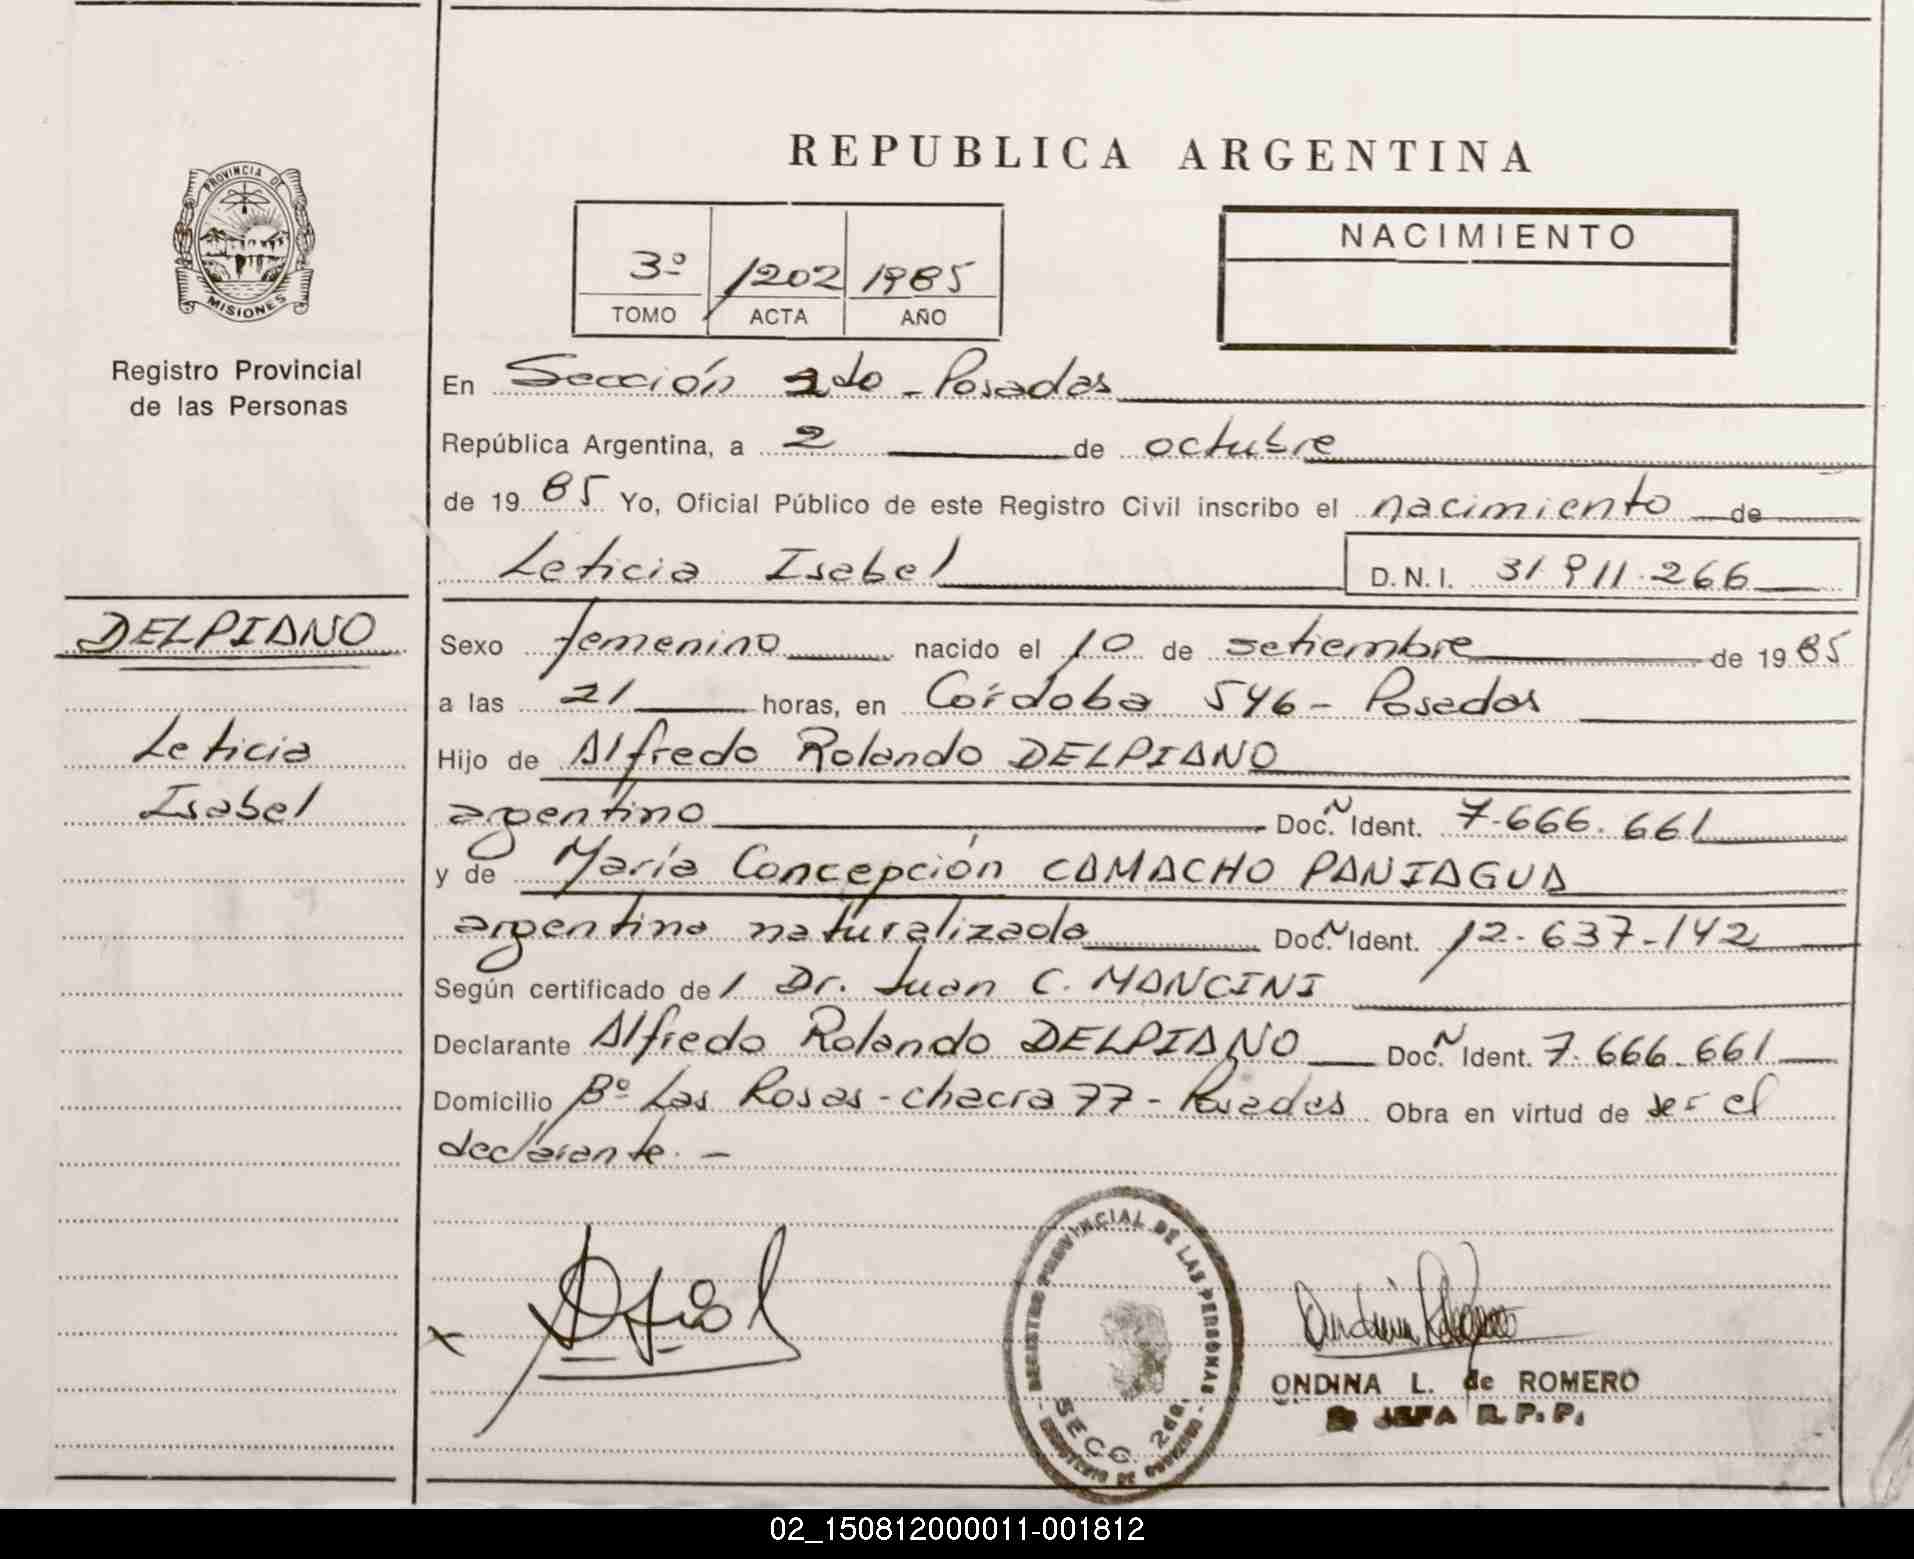 REPUBLICA ARGENTINA
PROVINCIA DE
MISIONES
Registro Provincial
de las Personas
3º 1202 1985
TOMO ACTA AÑO
NACIMIENTO
En Sección 2do - Posadas
República Argentina, a 2 de octubre
de 1985 Yo, Oficial Público de este Registro Civil inscribo el nacimiento de
Leticia Isabel D.N.I. 31.911.266
DELPIANO
Leticia
Isabel
Sexo femenino nacido el 10 de setiembre de 1985
a las 21 horas, en Córdoba 546 - Posadas
Hijo de Alfredo Rolando DELPIANO
argentino Doc. N Ident. 7.666.661
y de María Concepción CAMACHO PANIAGUA
argentina naturalizada Doc. N Ident. 12.637.142
Según certificado de l Dr. Juan C. MANCINI
Declarante Alfredo Rolando DELPIANO Doc. N Ident. 7.666.661
Domicilio Bº Las Rosas - chacra 77 - Posadas Obra en virtud de ser el
declarante. -
x
REGISTRO PROVINCIAL DE LAS PERSONAS
SECC. 2da.
ONDINA L. de ROMERO
JEFA R.P.P.
02_150812000011-001812